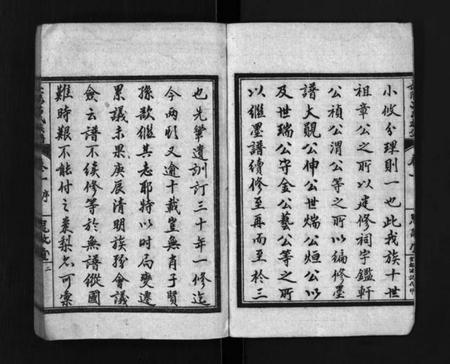 小攸分理則一也此我族十世
祖章公之所以建修祠宇鑑軒
公禎公渭公等之所以編修墨
譜大觀公伸公世煓公烜公以
及世瑞公守金公藝公等之所
以繼墨譜續修至再而至於三
也先肇遺訓訂三十年一修迄
今兩朝又逾十載豈無肖子賢
孫欲繼其志耶特以時局變遷
累議未果庚辰清明族孫會議
僉云譜不續修等於無譜縱國
難時艱不能付之棗梨亦可稾